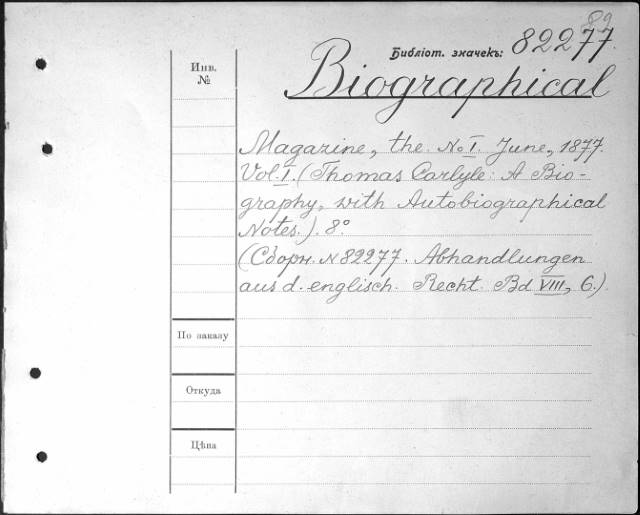 82
Библіот. значекъ: 82277.
Инв. №
Biographical
Magazine, the. No I. June, 1877.
Vol. I. (Thomas Carlyle: A Bio-
graphy, with Autobiographical
Notes.). 8°.
(Сборн. N 82277. Abhandlungen
aus d. englisch. Recht. Bd VIII, 6.).
По заказу
Откуда
Цѣна